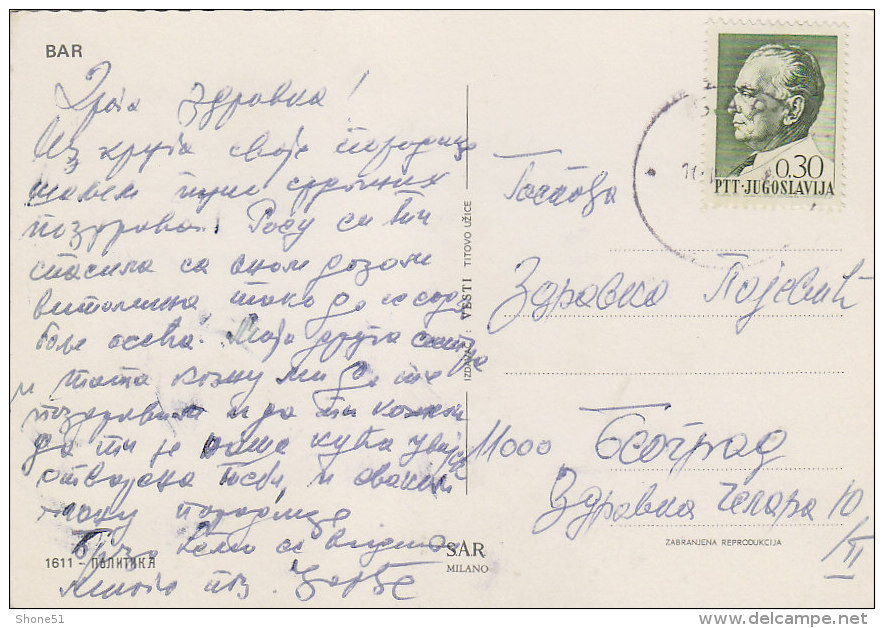 BAR
Драга Здравка!
Из круга своје породице
шаљем пуно срдачних
поздрава! Росу си ти
спасила са оном дозом
витамина тако да се сада
боље осећа. Моја друга сестра
и тата кажу ми да те
поздравим и да ти кажем
да ти је наша кућа увијек
отворена теби и
твоју породицу
Брзо ћемо се видети
Много поз. Ђорђе
1611 - ПОЛИТИКА
IZDAVAČ: VESTI TITOVO UŽICE
SAR
MILANO
0,30
PTT·JUGOSLAVIJA
Госпођа
Здравка Пајевић
11000 Београд
Здравка Челара 10
/III
ZABRANJENA REPRODUKCIJA
Shone51
delcampe.net